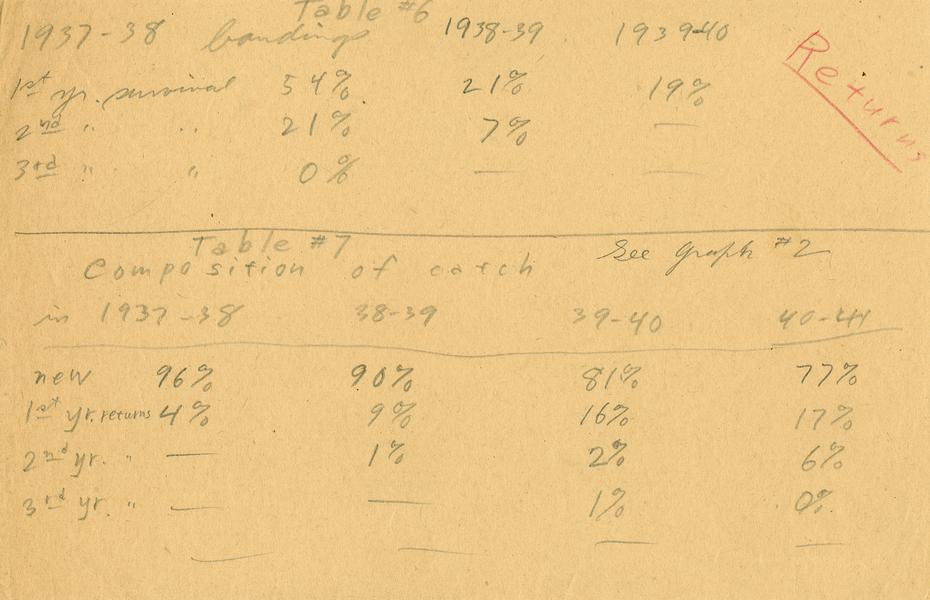 Table #6
1937-38 bandings 1938-39 1939-40
Returns
1st yr. survival 54% 21% 19%
2nd " " 21% 7% —
3rd " " 0% — —
Table #7
Composition of catch See Graph #2
in 1937-38 38-39 39-40 40-41
new 96% 90% 81% 77%
1st yr. returns 4% 9% 16% 17%
2nd yr. " — 1% 2% 6%
3rd yr. " — — 1% 0%